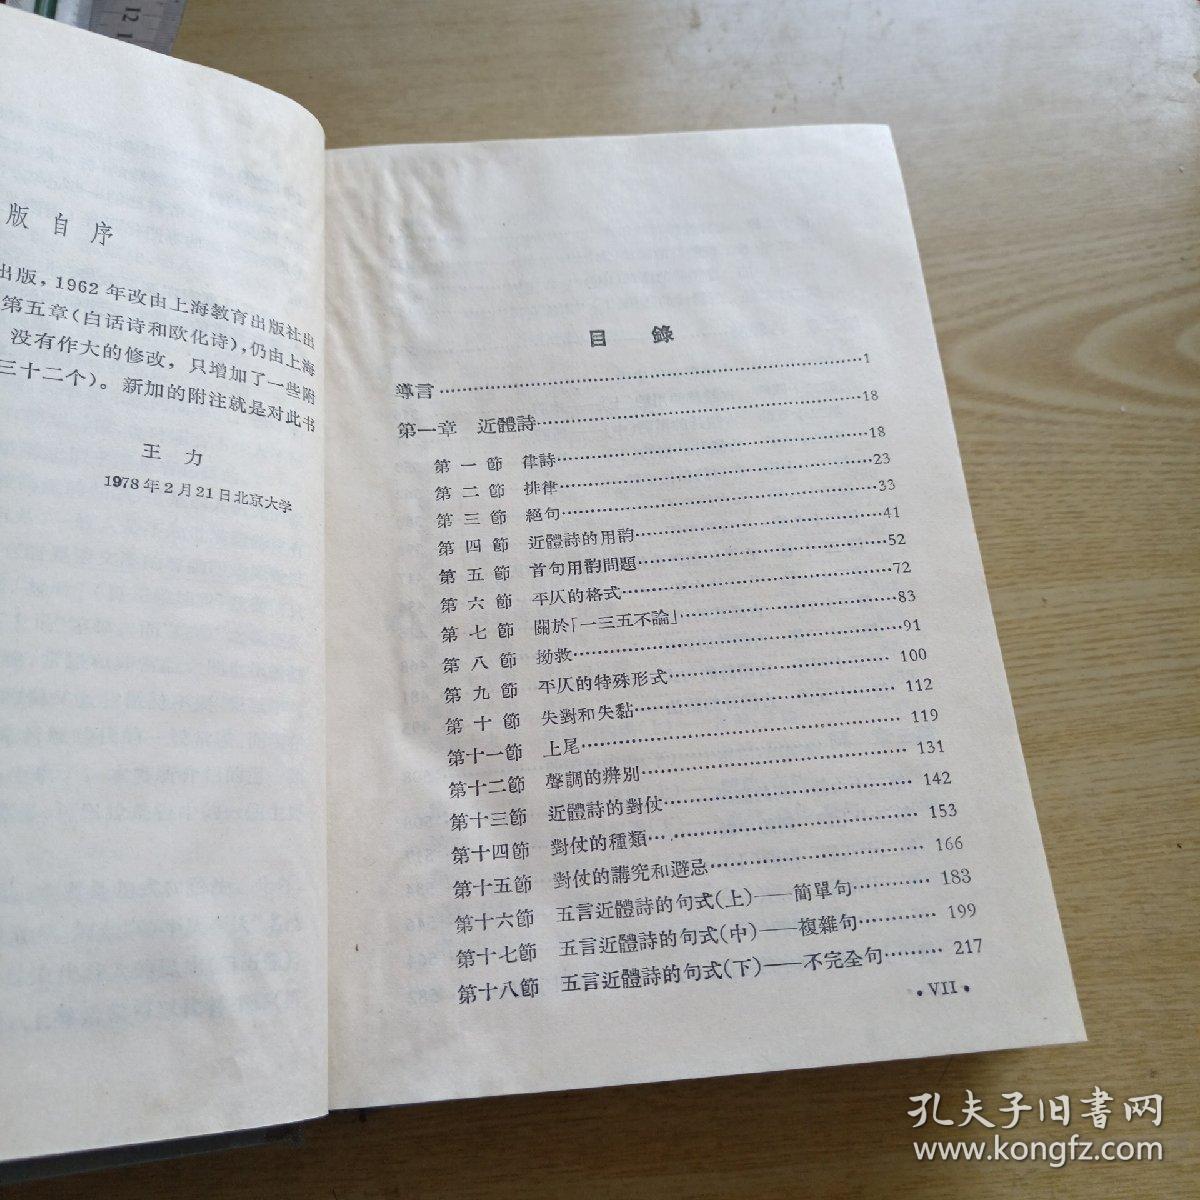 版自序
出版，1962年改由上海教育出版社出
第五章(白话诗和欧化诗)，仍由上海
没有作大的修改，只增加了一些附
三十二个)。新加的附注就是对此书
王力
1978年2月21日北京大学
目錄
導言……1
第一章 近體詩……18
第一節 律詩……18
第二節 排律……23
第三節 絕句……33
第四節 近體詩的用韵……41
第五節 首句用韵問題……52
第六節 平仄的格式……72
第七節 關於「一三五不論」……83
第八節 拗救……91
第九節 平仄的特殊形式……100
第十節 失對和失黏……112
第十一節 上尾……119
第十二節 聲調的辨別……131
第十三節 近體詩的對仗……142
第十四節 對仗的種類……153
第十五節 對仗的講究和避忌……166
第十六節 五言近體詩的句式(上)——簡單句……183
第十七節 五言近體詩的句式(中)——複雜句……199
第十八節 五言近體詩的句式(下)——不完全句……217
·VII·
12
孔夫子旧书网
www.kongfz.com